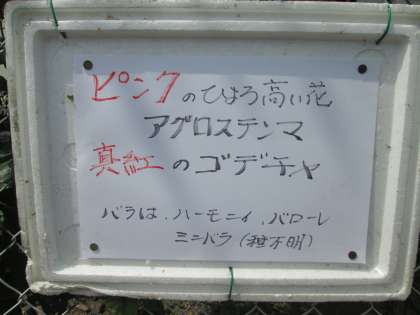 ピンクのひょろ高い花
アグロステンマ
真紅のゴデチャ
バラは、ハーモニィ、バローレ
ミニバラ(種不明)